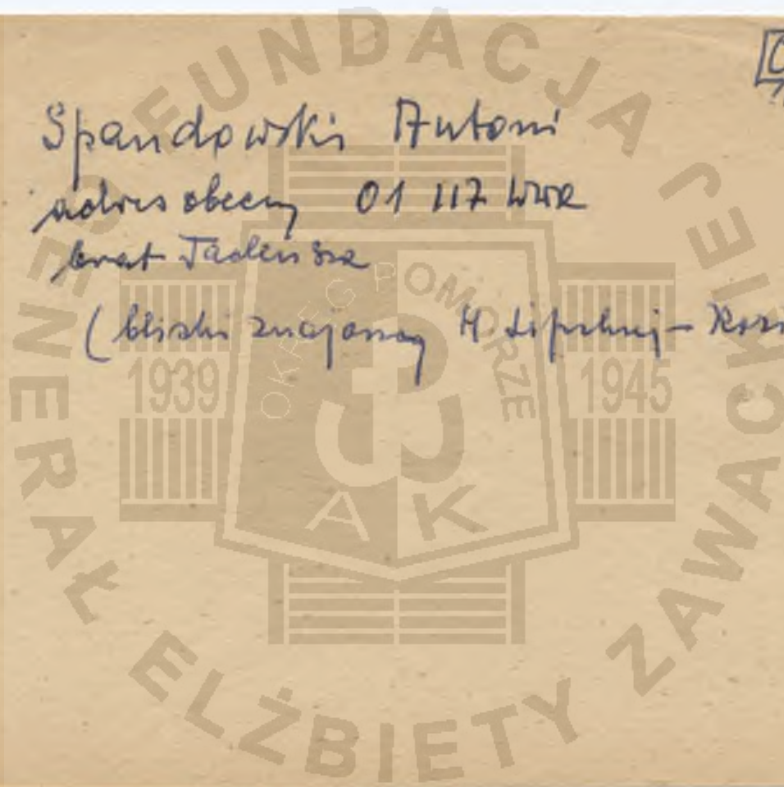 Spandowski Antoni
adres obecny 01 117 WWR
brat Tadeusza
(bliski znajomy H
FUNDACJA GENERAŁ ELŻBIETY ZAWACKIEJ
OKRĘG POMORZE
1939 1945
A K